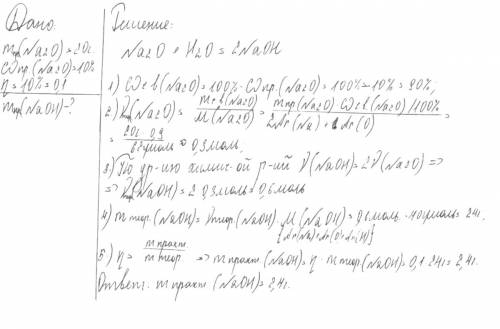 Дано:
mпр(Na2O)=20г.
ωпр.(Na2O)=10%
η = 10%=0,1
mпр(NaOH)-?
Решение:
Na2O + H2O = 2NaOH
1) ω в-в(Na2O)=100%-ωпр.(Na2O)=100%-10%=90%,
2) ν(Na2O)= m в-в(Na2O) / M(Na2O) = mпр(Na2O)·ω в-в(Na2O)/100% / 2Ar(Na)+Ar(O) =
= 20г·0,9 / 62г/моль = 0,3моль.
3) По ур-ию химич-ой р-ий ν(NaOH)=2ν(Na2O) =>
=> ν(NaOH)=2·0,3моль=0,6моль
4) m теор.(NaOH)=νтеор.(NaOH)·M(NaOH)=0,6моль·40г/моль=24г.
{Ar(Na)+Ar(O)+Ar(H)}
5) η = m практ. / m теор. => m практ.(NaOH)=η·m теор.(NaOH)=0,1·24г=2,4г.
Ответ: m практ.(NaOH)=2,4г.